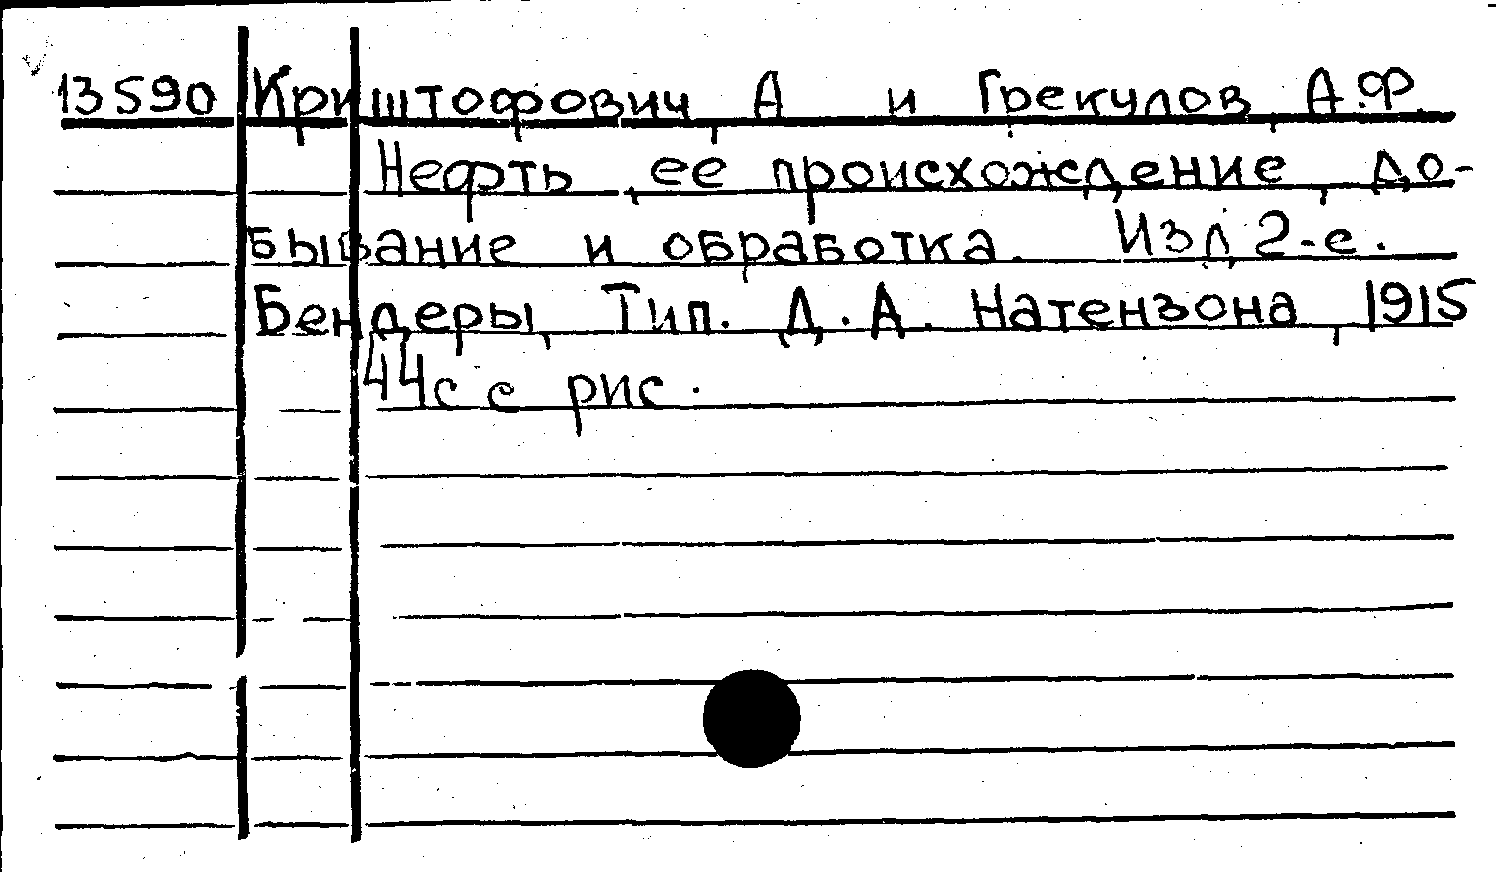 13590 Криштофович, А и Грекулов, А.Ф.
Нефть, ее происхождение, до-
бывание и обработка. Изд. 2-е.
Бендеры, Тип. Д.А. Натензона, 1915
44с с рис.